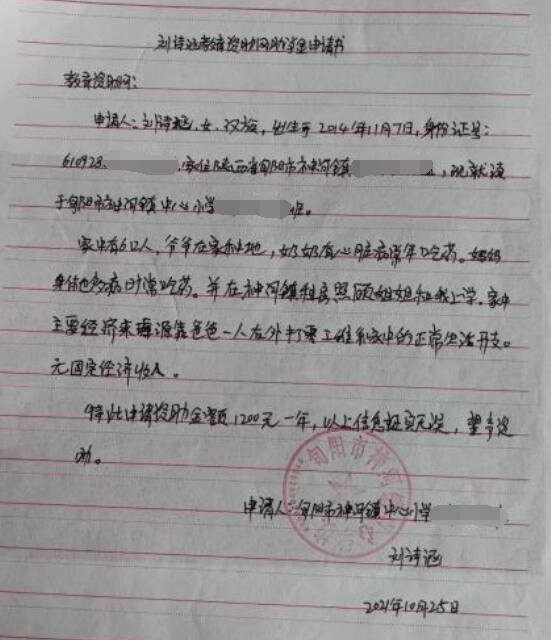 刘诗涵教育资助网助学金申请书
教育资助网:
申请人:刘诗涵,女,汉族,出生于2014年11月7日,身份证号:
610928 ,家住陕西省旬阳市神河镇 ,现就读
于旬阳市神河镇中心小学 班。
家中有6口人,爷爷在家种地,奶奶有心脏病常年吃药。妈妈
身体也多病时常吃药。并在神河镇租房照顾姐姐和我上学。家中
主要经济来源靠爸爸一人在外打零工维系家中的正常生活开支。
无固定经济收入。
特此申请资助金额1200元一年,以上信息证实无误,望予资
助。
旬阳市神河镇中心
申请人:旬阳市神河镇中心小学
刘诗涵
2021年10月25日